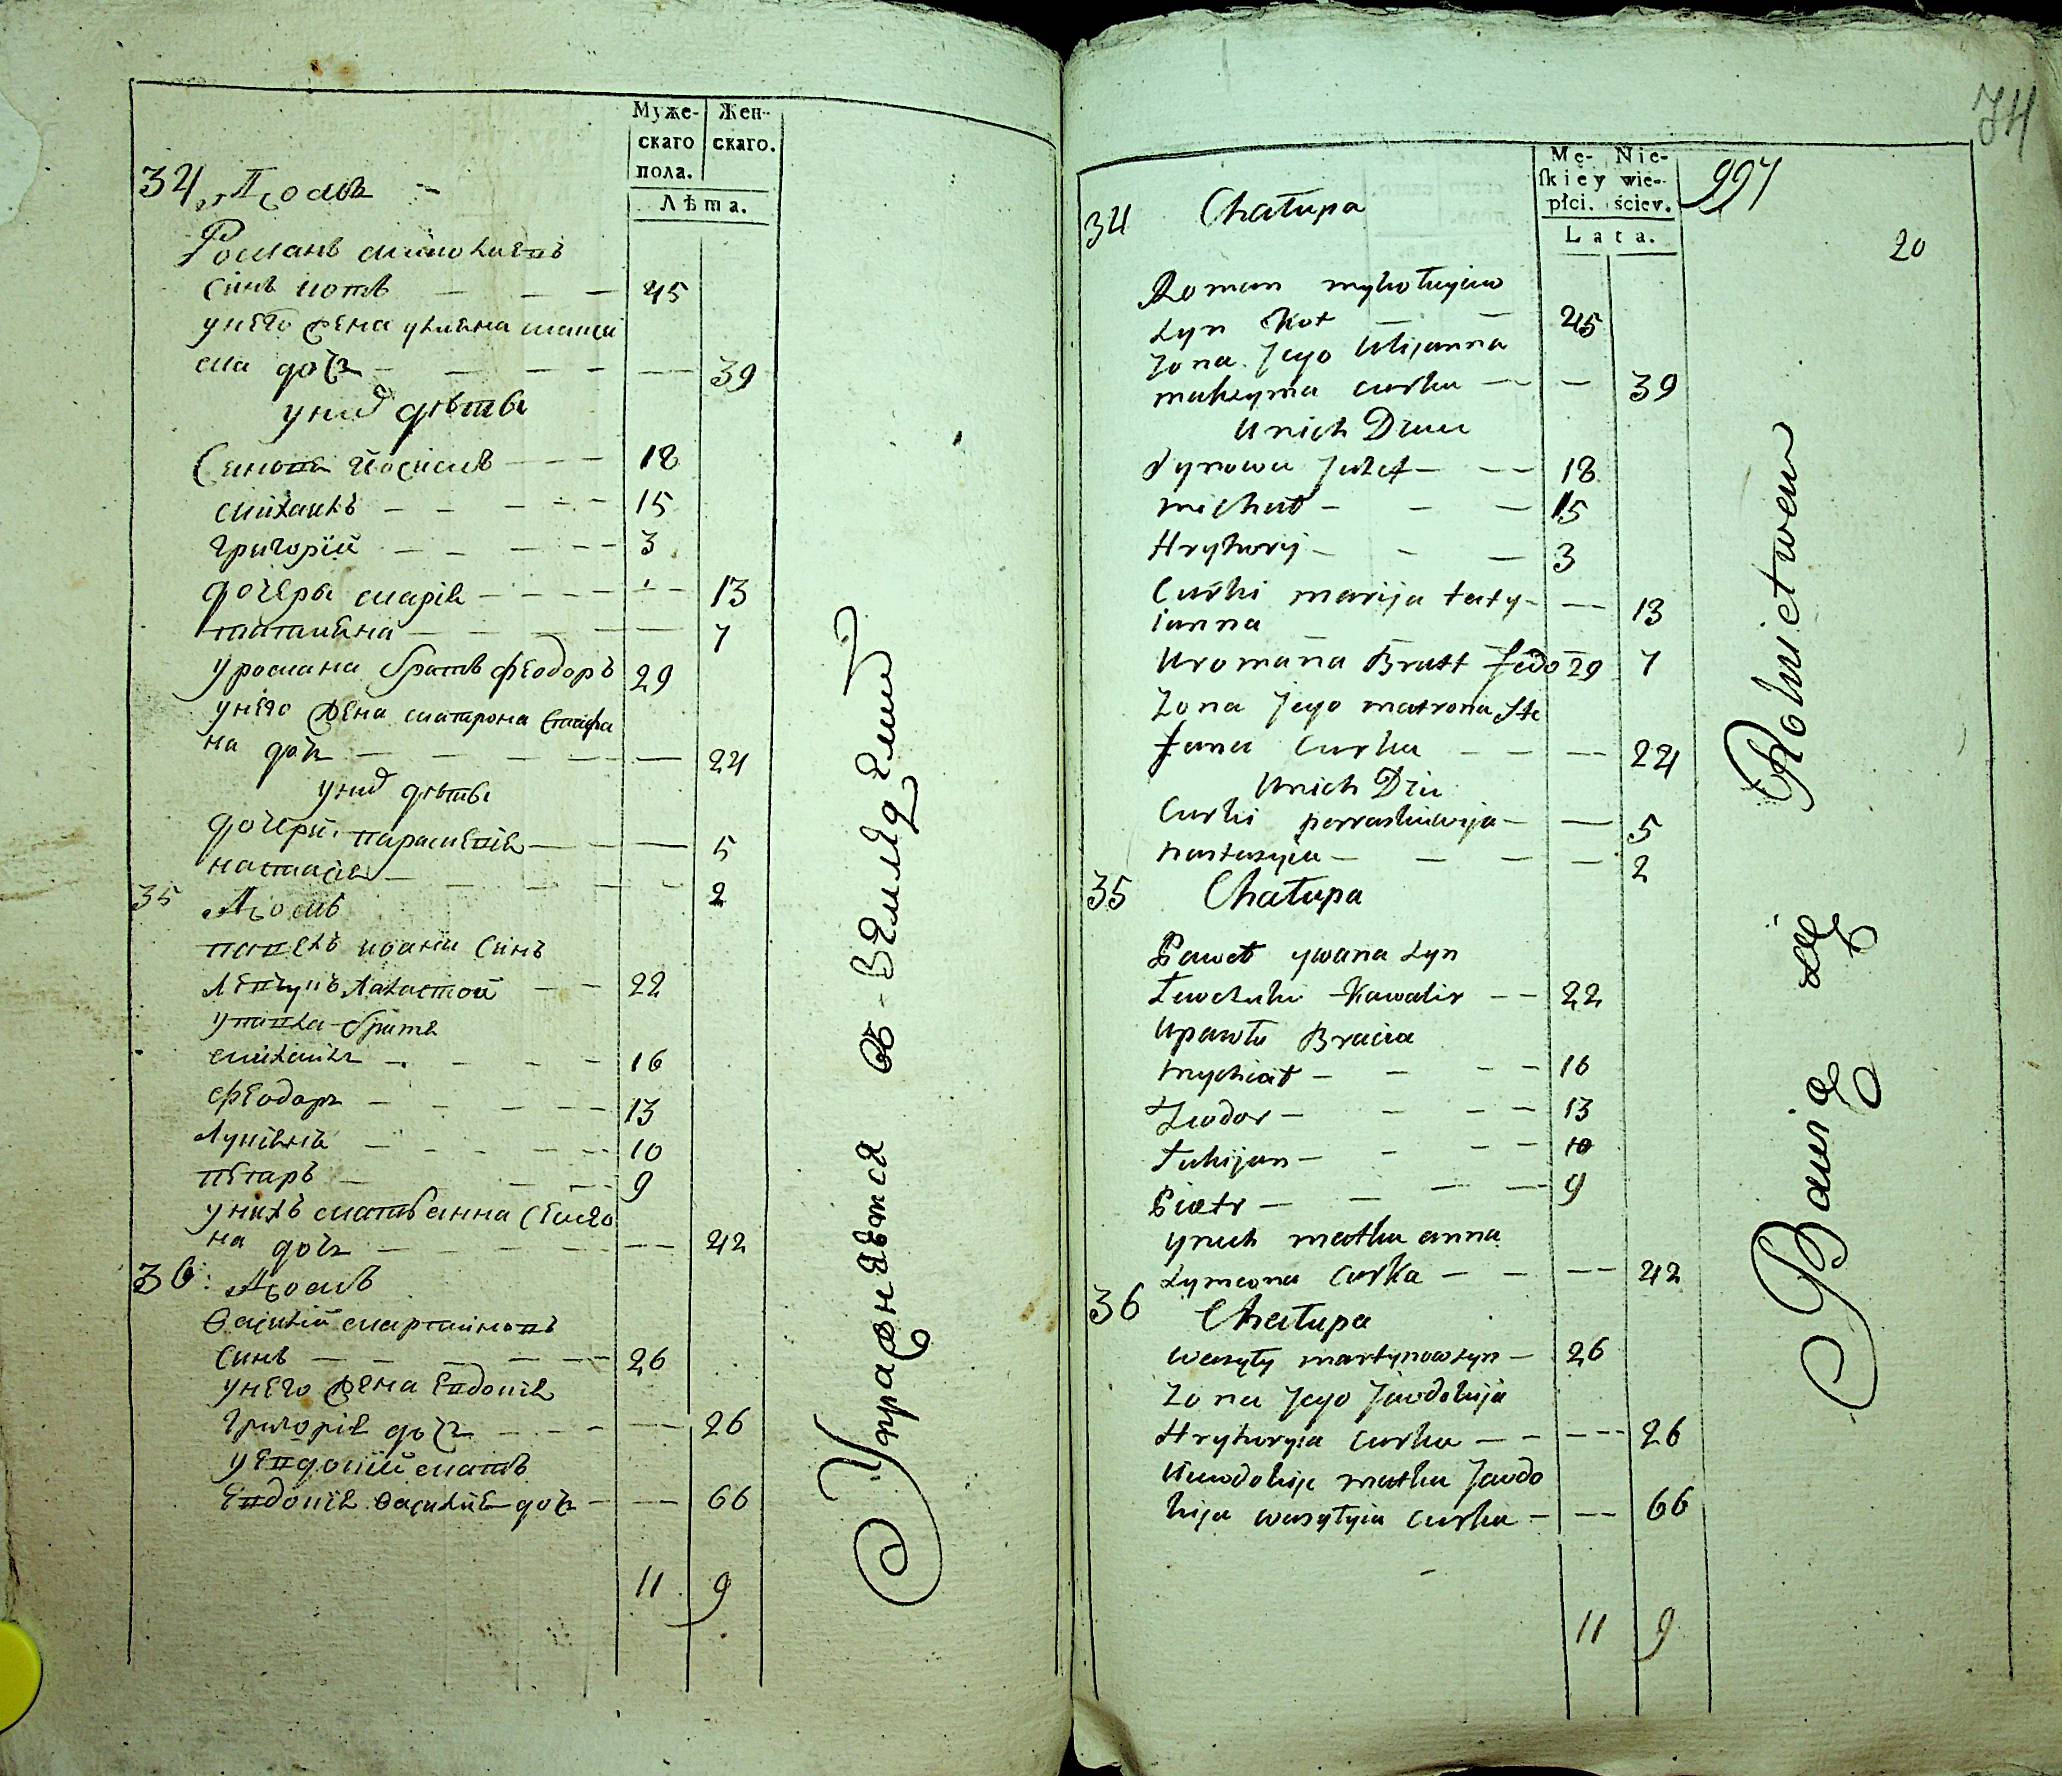 Муже- Жен-
скаго скаго.
пола.
Лѣта.
34 Домъ
Романъ Миколаевъ
синъ Котъ — — — 45
унего жена улияна макси
ма дочь — — — — — 39
у них дѣтѣ
Синове Йосифъ — — — 18
михаилъ — — — — 15
григорій — — — — 3
дочеры марія — — — — — 13
татияна — — — — — 7
у романа братъ феодоръ 29
унего жена матрона Стефа
на дочь — — — — — 24
у них дѣтѣ
дочери параскевія — — — 5
настасія — — — — 2
35 Домъ
павелъ иоани синъ
Левчукъ Холостой — — 22
у павла братя
михаилъ — — — — 16
феодоръ — — — — 13
Лукіянъ — — — — 10
петаръ — — — — 9
у нихъ мать анна Симео
на дочь — — — — — 42
36 Домъ
Василій мартиновъ
синъ — — — — — 26
унего жена Евдокія
Григорія дочь — — — — 26
у Евдокіи мать
Евдокія Василія дочь — — 66
11 9
Упражняется въ Земледелии
74
Mę- Nie-
ſkiey wie-
płci. ściev.
Lata.
997
20
34 Chałupa
Roman mykołayiw
syn Kot — — 45
Zona Jego Ulijanna
maksyma curka — — 39
Unich Dzieci
Synowie Juzef — — — 18
michał — — — 15
Hryhorij — — — 3
Curki marija taty- — 13
ianna
Uromana Bratt Fedo 29 7
Zona Jego matrona Ste
fana Curka — — — 24
Unich Dzie
Curki parraskiewija — — 5
nastazyia — — — — 2
35 Chałupa
Paweł ywana syn
Lewchuku Kawalir — — 22
Upawła Bracia
mychiał — — — — 16
Feodor — — — 13
Łukijan — — — — 10
Piotr — — — — 9
ynich matka anna
Symeona Curka — — — 42
36 Chałupa
Wasyły martynow syn — 26
Zona Jego Jawdokija
Hryhoryia curka — — — 26
Ujawdokije matka Jawdo
kija wasyłyia curka — — 66
11 9
Bawią się Rolnictwem